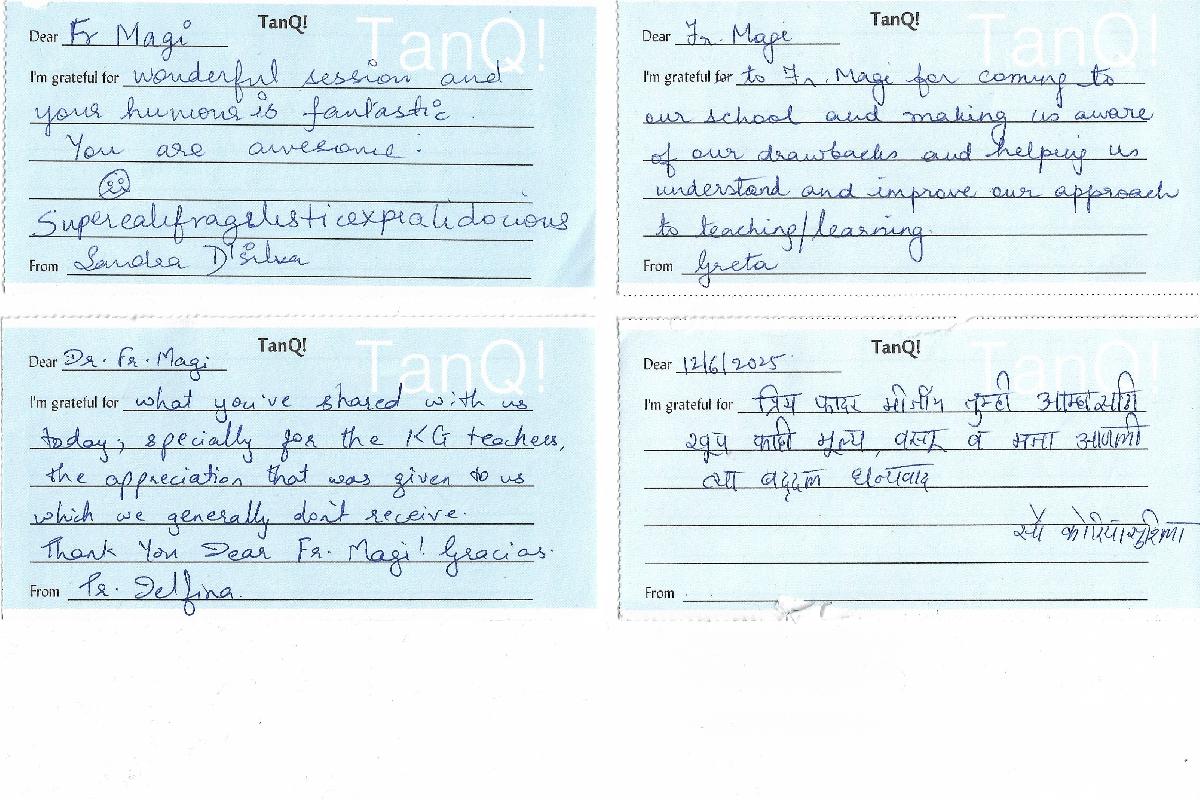 TanQ!
TanQ!
Dear Fr Magi
I'm grateful for wonderful session and
your humour is fantastic.
You are awesome.
Supercalifragilisticexpialidocious
From Sandra D'silva
TanQ!
TanQ!
Dear Fr. Magi
I'm grateful for to Fr. Magi for coming to
our school and making us aware
of our drawbacks and helping us
understand and improve our approach
to teaching/learning.
From Greta
TanQ!
TanQ!
Dear Dr. Fr. Magi
I'm grateful for what you've shared with us
today, specially for the KG teachers,
the appreciation that was given to us
which we generally don't receive.
Thank You Dear Fr. Magi! Gracias.
From Tr. Delfina.
TanQ!
TanQ!
Dear 12/6/2025
I'm grateful for प्रिय फादर तुम्ही
खुप काही मूल्य, वस्तू व आणली
त्या बद्दल धन्यवाद
सौ
From